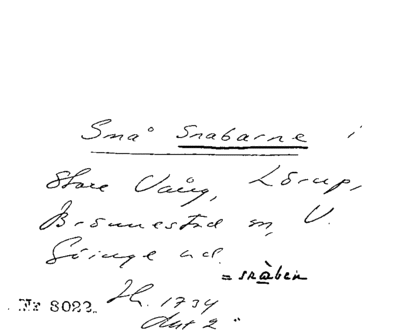 Små Snabarne i
Stora Vång, Lörup,
Brönnestad sn, V.
Göinge hd.
= snàben
Nr 8022. Lh. 1734
Akt 2